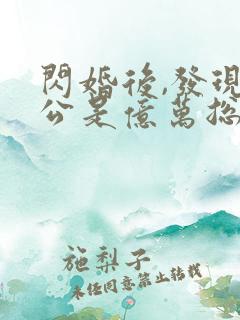 閃婚後,發現
公是億萬總
施梨子
未經同意禁止轉載